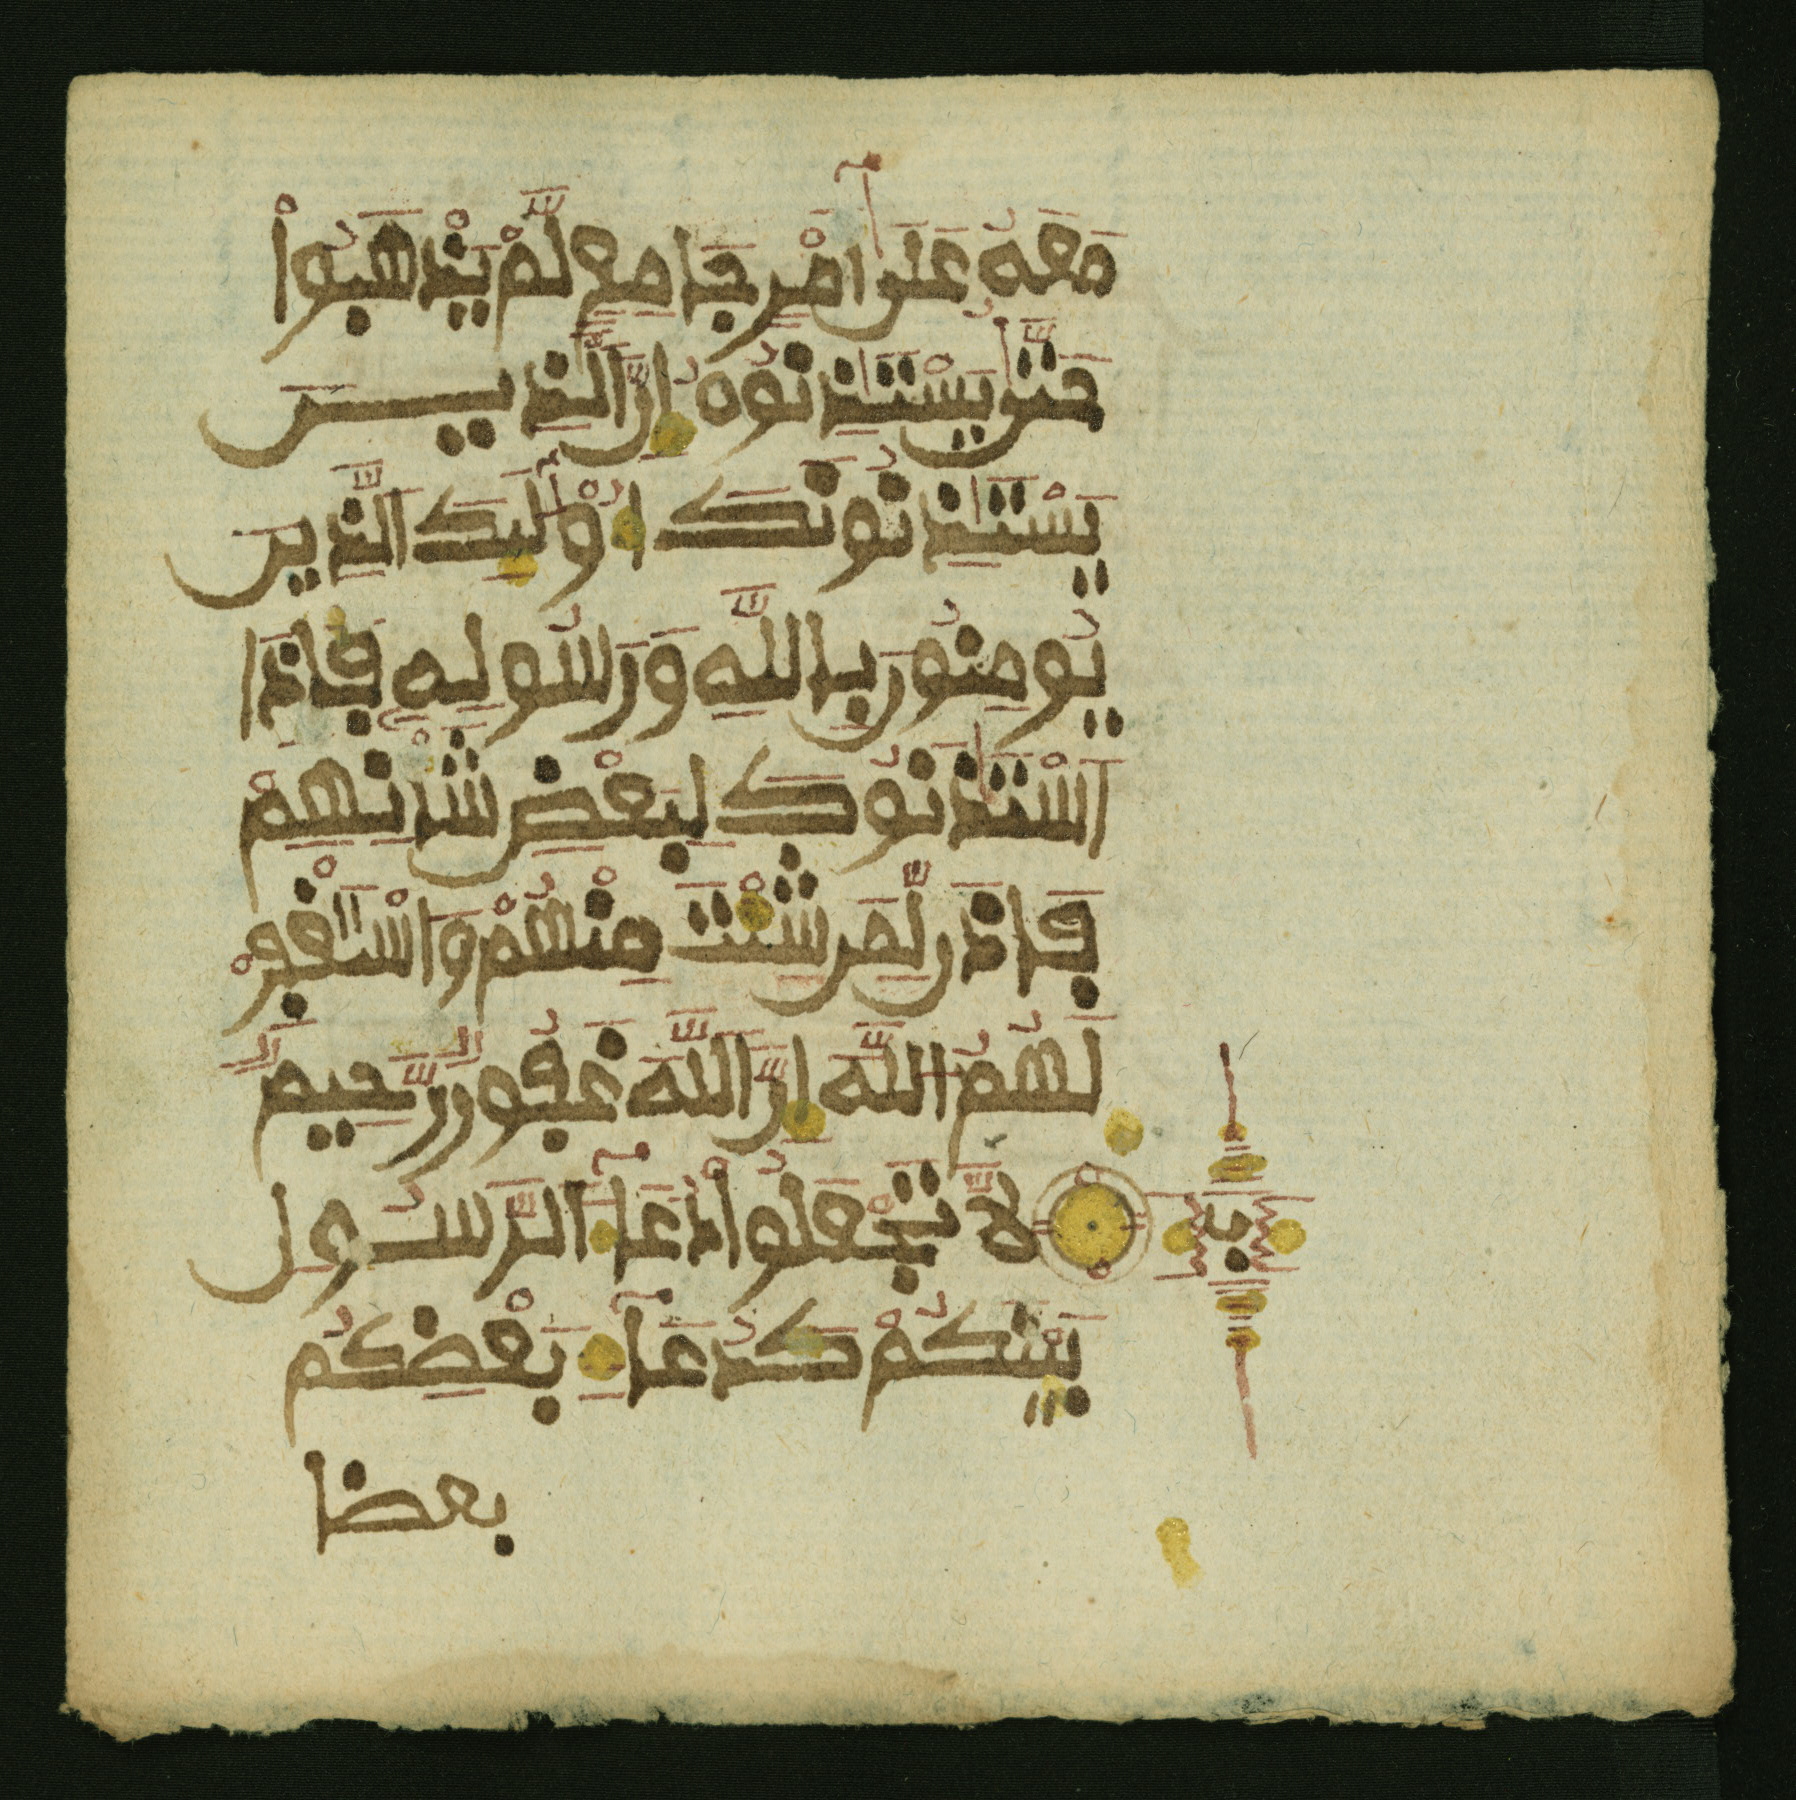 مَعَهُ عَلَىٰ أَمْرٍ جَامِعٍ لَّمْ يَذْهَبُواْ
حَتَّىٰ يَسْتَٰذِنُوهُ إِنَّ الَّذِينَ
يَسْتَٰذِنُونَكَ أُوْلَٰئِكَ الَّذِينَ
يُومِنُونَ بِاللَّهِ وَرَسُولِهِ فَإِذَا
اسْتَٰذَنُوكَ لِبَعْضِ شَانِهِمْ
فَاذَن لِّمَن شِئْتَ مِنْهُمْ وَاسْتَغْفِرْ
لَهُمُ اللَّهَ إِنَّ اللَّهَ غَفُورٌ رَّحِيمٌ
لَّا تَجْعَلُواْ دُعَآءَ الرَّسُولِ
بَيْنَكُمْ كَدُعَآءِ بَعْضِكُم
بعضا